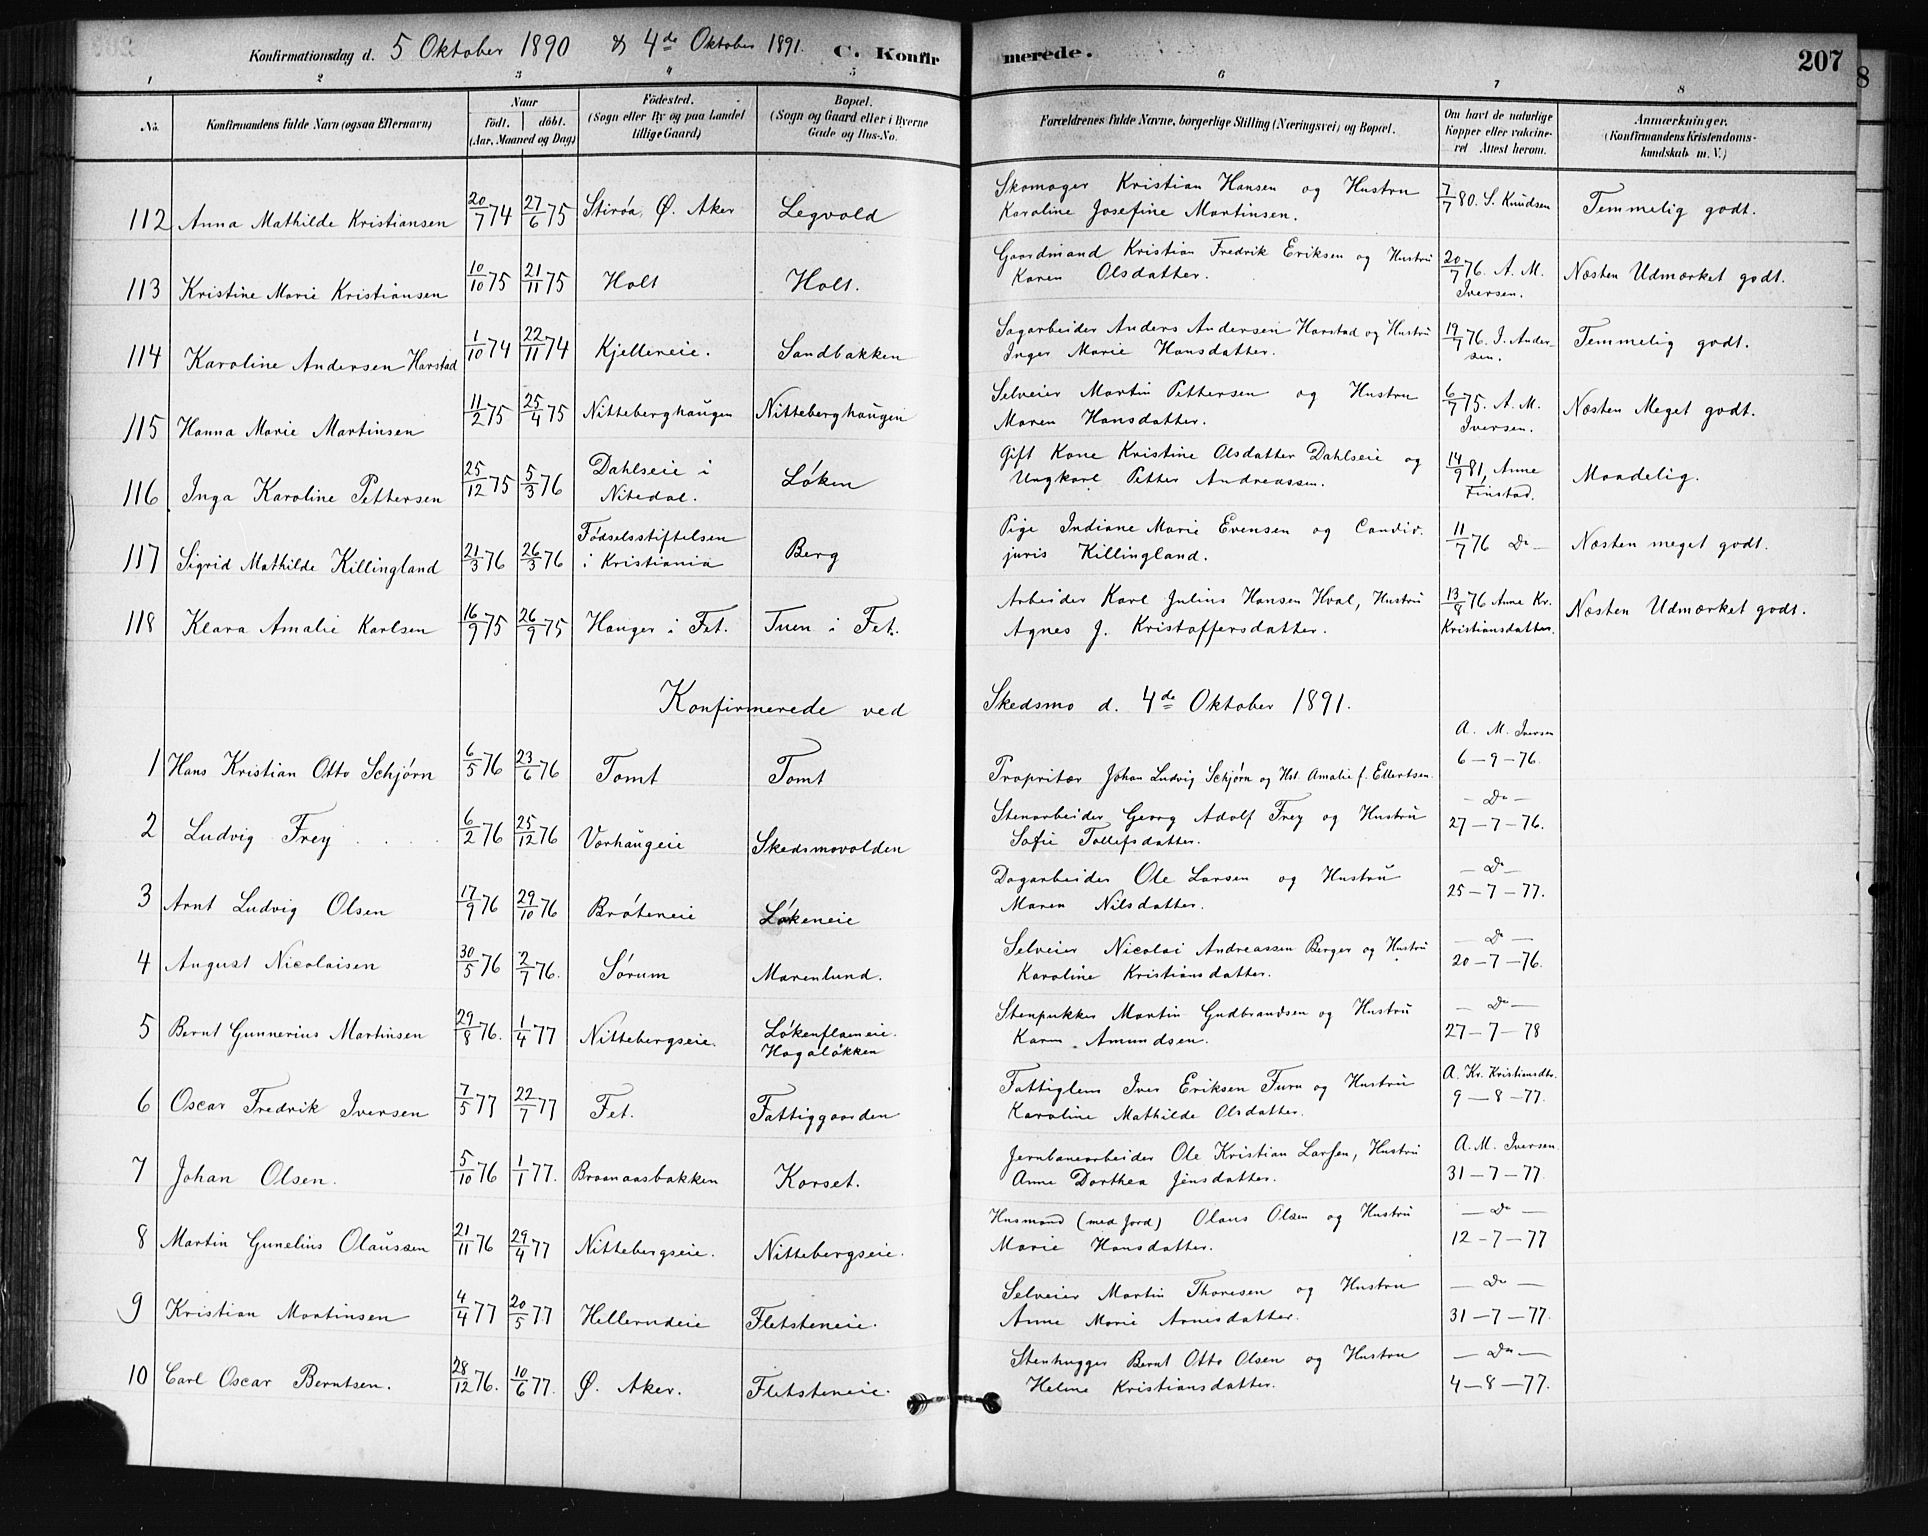 Konfirmationsdag d. 5 Oktober 1890 & 4de Oktober 1891. C. Konfirmerede. 207
1 2 3 4 5 6 7 8
No. Konfirmandens fulde Navn (ogsaa Efternavn) Naar født. døbt. (Aar, Maaned og Dag) Fødested. (Sogn eller By og paa Landet tillige Gaard) Bopæl. (Sogn og Gaard eller i Byerne Gade og Hus-No. Forældrenes fulde Navne, borgerlige Stilling (Næringsvei) og Bopæl. Om havt de naturlige Kopper eller vakcineret Attest herom. Anmærkninger. (Konfirmandens Kristendomskundskab m. V.)
112 Anna Mathilde Kristiansen 20/7 74 27/6 75 Ø. Aker Legvold Skomager Kristian Hansen og Hustru Karoline Josefine Martinsen. 7/7 80. S. Knudsen Temmelig godt.
113 Kristine Marie Kristiansen 10/10 75 21/11 75 Holt Holt. Gaardmand Kristian Fredrik Eriksen og Hustru Karen Olsdatter. 20/7 76. A. M. Iversen. Næsten Udmærket godt.
114 Karoline Andersen Harstad 1/10 74 22/11 74 Kjellereie. Sandbakken Sagarbeider Anders Andersen Harstad og Hustru Inger Marie Hansdatter. 19/7 76. I. Andersen. Temmelig godt.
115 Hanna Marie Martinsen 11/2 75 25/4 75 Nitteberghaugen Nitteberghaugen Selveier Martin Pettersen og Hustru Maren Hansdatter. 6/7 75. A. M. Iversen. Næsten Meget godt.
116 Inga Karoline Pettersen 25/12 75 5/3 76 Dahlseie i Nitedal. Løken Gift Kone Kristine Olsdatter Dahlseie og Ungkarl Petter Andreassen. 14/9 81, Anne Finstad. Maadelig.
117 Sigrid Mathilde Killingland 21/3 76 26/3 76 Fødselsstiftelsen i Kristiania Berg Pige Indiane Marie Evensen og Candid. juris Killingland. 11/7 76 Do — Næsten meget godt.
118 Klara Amalie Karlsen 16/9 75 26/9 75 Hauger i Fet. Tuen i Fet. Arbeider Karl Julius Hansen Hval, Hustru Agnes J. Kristoffersdatter. 13/8 76 Anne Kr. Kristiansdatter. Næsten Udmærket godt.
Konfirmerede ved Skedsmo d. 4de Oktober 1891.
1 Hans Kristian Otto Schjørn 6/5 76 23/6 76 Tomt Tomt Propritær Johan Ludvig Schjørn og Hst. Amalie f. Ellertsen. A. M. Iversen 6-9-76.
2 Ludvig Frey 6/2 76 25/12 76 Vorhaugeie Skedsmovolden Stenarbeider Georg Adolf Frey og Hustru Sofie Tollefsdatter. — Do — 27-7-76.
3 Arnt Ludvig Olsen 17/9 76 29/10 76 Bråteneie Løkeneie Dagarbeider Ole Larsen og Hustru Maren Nilsdatter. — Do — 25-7-77.
4 August Nicolaisen 30/5 76 2/7 76. Sørum Marenlund. Selveier Nicolai Andreassen Berger og Hustru Karoline Kristiansdatter. — Do — 20-7-76.
5 Bernt Gunnerius Martinsen 29/8 76. 1/4 77 Nittebergseie. Løkenflameie. Hagaløkken Stenpukker Martin Gudbrandsen og Hustru Karen Amundsen. — Do — 27-7-78
6 Oscar Fredrik Iversen 7/5 77 22/7 77 Fet. Fattiggaarden Fattiglem Iver Eriksen Furu og Hustru Karoline Mathilde Olsdatter. A. Kr. Kristiansdtr. 9-8-77.
7 Johan Olsen. 5/10 76 1/1 77. Braanaasbakken Korset. Jernbanearbeider Ole Kristian Larsen, Hustru Anne Dorthea Jensdatter. A. M. Iversen. 31-7-77.
8 Martin Gunelius Olaussen 21/11 76 29/4 77 Nittebergseie. Nittebergseie. Husmand (med jord) Olaus Olsen og Hustru Marie Hansdatter. — Do — 12-7-77
9 Kristian Martinsen 4/4 77 20/5 77. Hellerudeie Fletsteneie. Selveier Martin Thoresen og Hustru Anne Marie Arnesdatter. — Do — 31-7-77.
10 Carl Oscar Berntsen. 28/12 76. 10/6 77. Ø. Aker. Fletsteneie. Stenhugger Bernt Otto Olsen og Hustru Helene Kristiansdatter. — Do — 4-8-77.